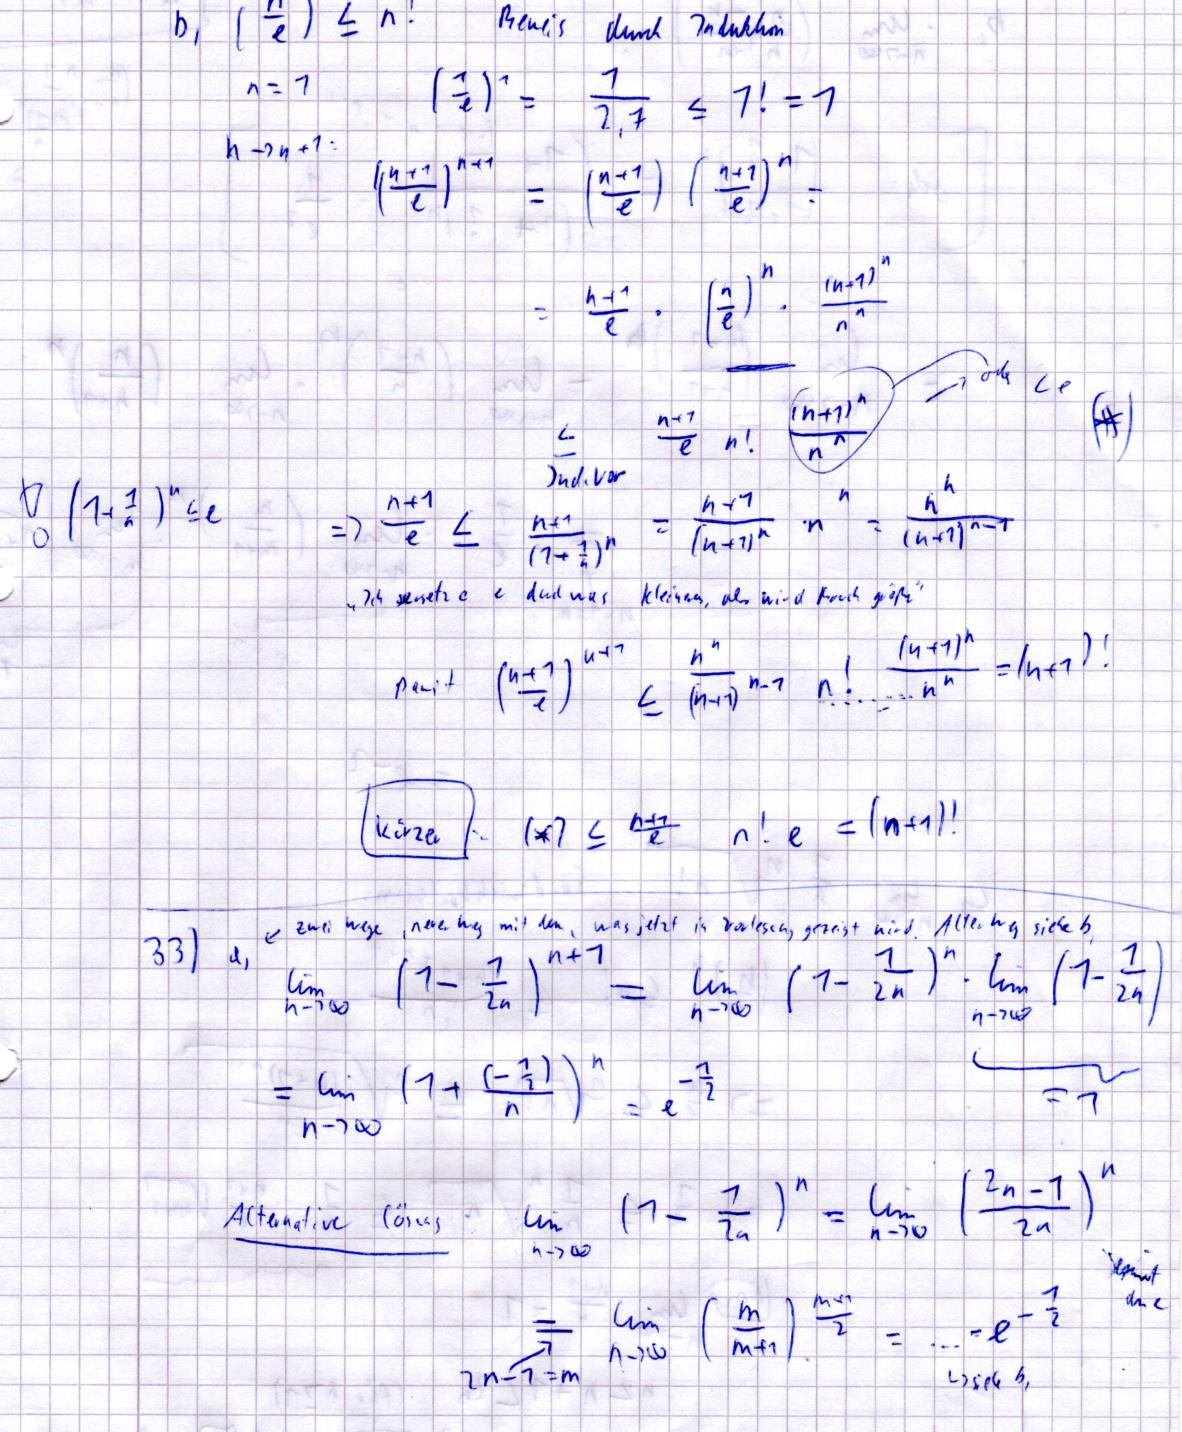 b, (n/e) ≤ n! Beweis durch Induktion
n = 1 (1/e)^1 = 1/2,7 ≤ 1! = 1
n → n+1: ((n+1)/e)^(n+1) = ((n+1)/e) ((n+1)/e)^n =
= (n+1)/e · (n/e)^n · (n+1)^n/n^n
≤ Ind.Vor (n+1)/e n! (n+1)^n/n^n → oder < e (*)
∇ (1+1/n)^n ≤ e ⇒ (n+1)/e ≤ (n+1)/(1+1/n)^n = (n+1)/(n+1)^n · n^n = n^n/(n+1)^(n-1)
„Ich ersetze e durch was kleineres, also wird Bruch größer"
Damit ((n+1)/e)^(n+1) ≤ n^n/(n+1)^(n-1) n! (n+1)^n/n^n = (n+1)!
Kürzer: (*) ≤ (n+1)/e n! e = (n+1)!
33) a, zwei Wege, neuer Weg mit dem, was jetzt in Vorlesung gezeigt wird. Alter Weg siehe b,
lim n→∞ (1 - 1/2n)^(n+1) = lim n→∞ (1 - 1/2n)^n · lim n→∞ (1 - 1/2n)
= lim n→∞ (1 + (-1/2)/n)^n = e^(-1/2) = 1
Alternative Lösung: lim n→∞ (1 - 1/2n)^n = lim n→∞ ((2n-1)/2n)^n
= lim n→∞ (m/(m+1))^((m+1)/2) = ... = e^(-1/2)
2n-1=m ↳ siehe b,